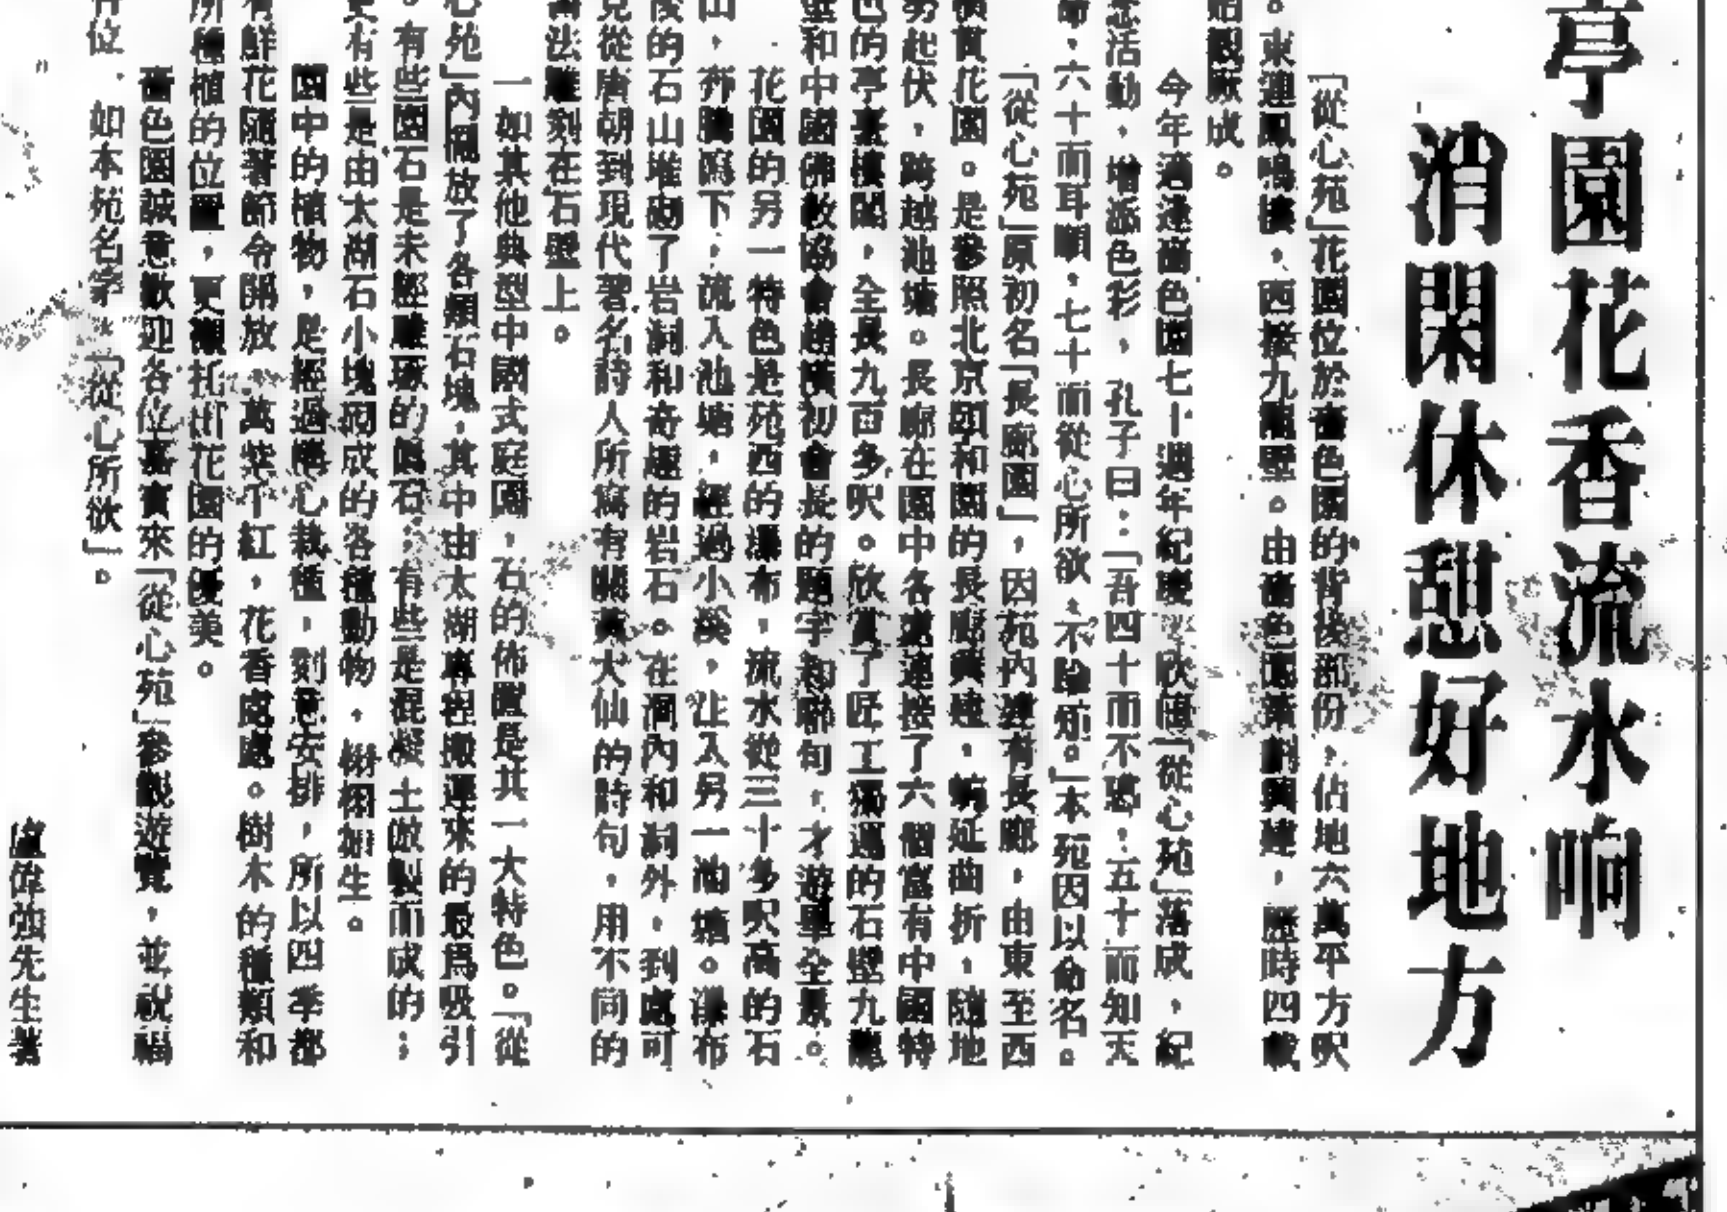 亭園花香流水响
消閑休憩好地方
「從心苑」花園位於嗇色園的背後部份，佔地六萬平方呎
。東連鳳鳴樓，西接九龍壁。由嗇色園策劃興建，歷時四載
始製成。
今年適逢嗇色園七十週年紀慶，欣值「從心苑」落成，紀
念活動，增添色彩，孔子曰：「吾四十而不惑，五十而知天
命，六十而耳順，七十而從心所欲，不踰矩。」本苑因以命名。
「從心苑」原初名「長廊園」，因苑內建有長廊，由東至西
橫貫花園。是參照北京頤和園的長廊興建，蜿延曲折，隨地
勢起伏，跨越池塘。長廊在園中各處連接了六個富有中國特
色的亭臺樓閣，全長九百多呎。欣賞了匠工獨運的石壁九龍
壁和中國佛教協會趙樸初會長的題字和聯句，才遊畢全景。
花園的另一特色是苑西的瀑布，流水從三十多呎高的石
山，奔騰瀉下，流入池塘，經過小溪，注入另一池塘。瀑布
後的石山堆砌了岩洞和奇趣的岩石。在洞內和洞外，到處可
見從唐朝到現代著名詩人所寫有關黃大仙的詩句，用不同的
書法雕刻在石壁上。
一如其他典型中國式庭園，石的佈置是其一大特色。「從
心苑」內擺放了各類石塊，其中由太湖專程搬運來的最爲吸引
。有些園石是未經雕琢的 石；有些是混凝土倣製而成的；
更有些是由太湖石小塊砌成的各種動物，栩栩如生。
園中的植物，是經過精心栽種，刻意安排，所以四季都
有鮮花隨著節令開放，萬紫千紅，花香處處。樹木的種類和
所種植的位置，更襯托出花園的優美。
嗇色園誠意歡迎各位嘉賓來「從心苑」參觀遊覽，並祝福
各位，如本苑名字，「從心所欲」。
盧偉強先生著